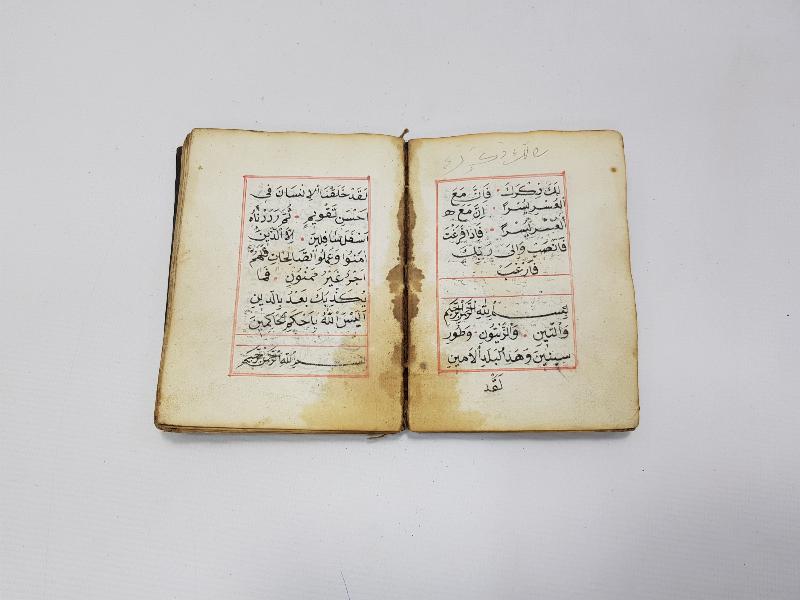 لك ذكرك فان مع
العسر يسرا ان مع
العسر يسرا فاذا فرغت
فانصب والى ربك
فارغب
بسم الله الرحمن الرحيم
والتين والزيتون وطور
سينين وهذ البلد الامين
لقد
لقد خلقنا الانسان في
احسن تقويم ثم رددناه
اسفل سافلين الا الذين
امنوا وعملوا الصالحات فلهم
اجر غير ممنون فما
يكذبك بعد بالدين
اليس الله باحكم الحاكمين
بسم الله الرحمن الرحيم